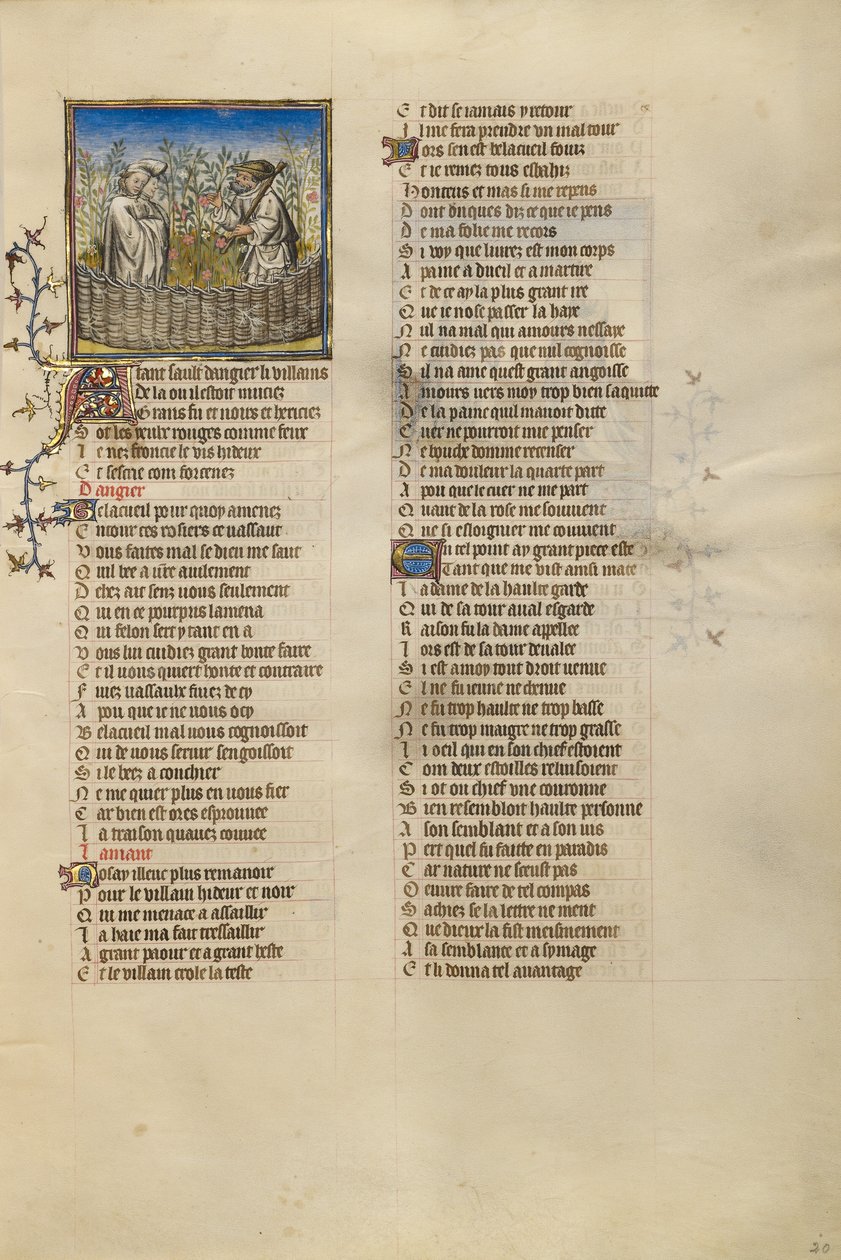 Atant sault dangier li villains
de la ou il estoit muciez
Grans fu et noirs et hericiez
Sot les yeulx rouges comme feux
Le nez froncie le vis hideux
Et sescrie com forcenez
Dangier
Belacueil pour quoy amenez
Entour ces rosiers ce vassaut
Vous faites mal se dieu me saut
Quil bee a vr̄e auilement
Dehez ait senz vous seulement
Qui en ce pourpris lamena
Qui felon sert y tant en a
Vous lui cuidiez grant bonte faire
Et il vous quiert honte et contraire
Fuiez vassaulx fuiez de cy
A pou que ie ne vous ocy
Belacueil mal vous cognoissoit
Qui de vous seruir sengoissoit
Si le beez a conchier
Ne me quier plus en vous fier
Car bien est ores esprouuee
La traison quauez couuee
Lamant
Nosay illeuc plus remanoir
Pour le villain hideux et noir
Qui me menace a assaillir
La haie ma fait tressaillir
A grant paour et a grant heste
Et le villain crole la teste
Et dit se iamais y retour
Il me fera prendre vn mal tour
Lors sen est belacueil fouiz
Et ie remez tous esbahiz
Honteus et mas si me repens
Dont onques diz ce que ie pens
De ma folie me recors
Si voy que liurez est mon corps
A paine a dueil et a martire
Et de ce ay la plus grant ire
Que ie nose passer la haye
Nul na mal qui amours nessaye
Ne cuidiez pas que nul cognoisse
Sil na ame quest grant angoisse
Amours vers moy trop bien saquitte
De la paine quil mauoit ditte
Cuer ne pourroit mie penser
Ne bouche domme recenser
De ma douleur la quarte part
A pou que le cuer ne me part
Quant de la rose me souuient
Que si eslongnier me couuient
En tel point ay grant piece este
Tant que me vist ainsi mate
La dame de la haulte garde
Qui de sa tour aual esgarde
Raison fu la dame appellee
Lors est de sa tour deualee
Si est a moy tout droit venue
El ne fu ieune ne chenue
Ne fu trop haulte ne trop basse
Ne fu trop maigre ne trop grasse
Li oeil qui en son chief estoient
Com deux estoilles reluisoient
Si ot ou chief vne couronne
Bien resembloit haulte personne
A son semblant et a son vis
Pert quel fu faitte en paradis
Car nature ne sceust pas
Oeuure faire de tel compas
Sachiez se la lettre ne ment
Que dieux la fist meismement
A sa semblance et a symage
Et li donna tel auantage
20